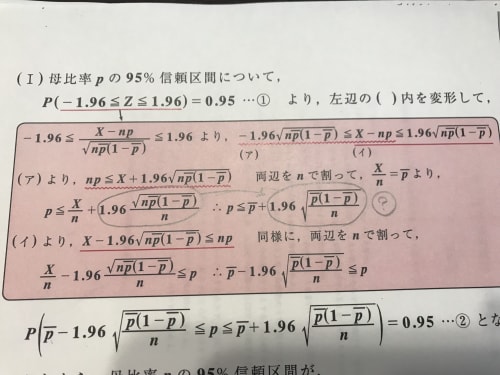 (Ⅰ) 母比率 p の 95% 信頼区間について，
P(−1.96≦Z≦1.96)=0.95 …① より，左辺の( )内を変形して，
−1.96≦(X−np)/√(np̄(1−p̄))≦1.96 より，−1.96√(np̄(1−p̄))≦X−np≦1.96√(np̄(1−p̄))
(ア) (イ)
(ア)より，np≦X+1.96√(np̄(1−p̄)) 両辺を n で割って，X/n=p̄ より，
p≦X/n+1.96 √(np̄(1−p̄))/n ∴p≦p̄+1.96 √(p̄(1−p̄)/n) ?
(イ)より，X−1.96√(np̄(1−p̄))≦np 同様に，両辺を n で割って，
X/n−1.96 √(np̄(1−p̄))/n≦p ∴p̄−1.96 √(p̄(1−p̄)/n)≦p
P(p̄−1.96 √(p̄(1−p̄)/n)≦p≦p̄+1.96 √(p̄(1−p̄)/n))=0.95 …② とな
母比率 p の 95% 信頼区間が，